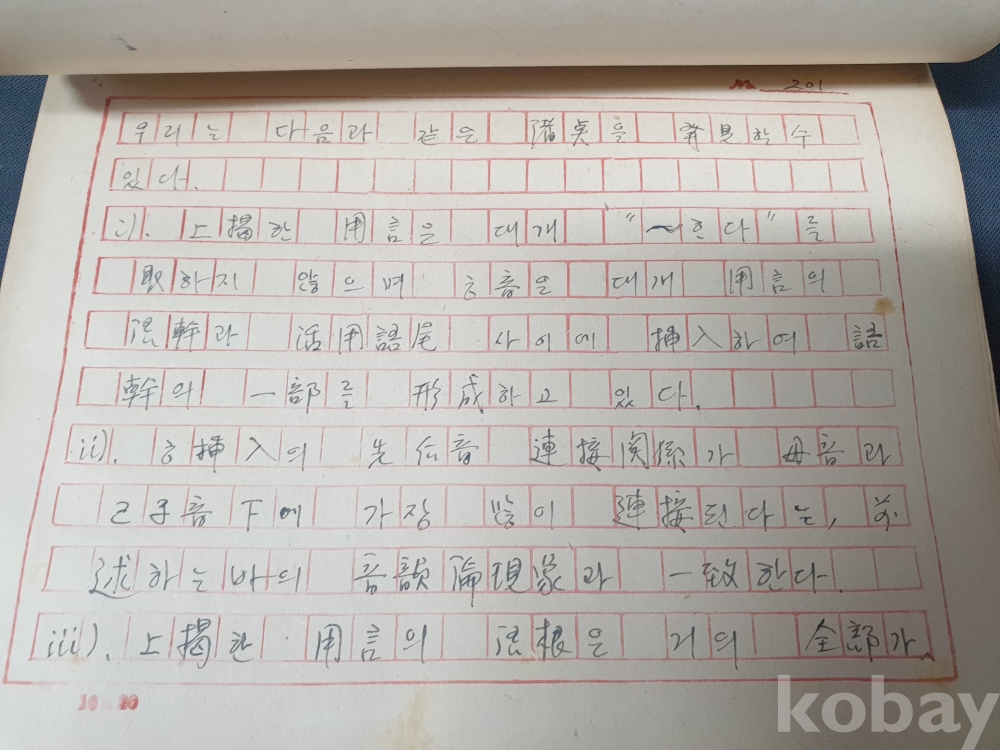 201
우리는 다음과 같은 諸点을 発見할 수
있다.
i). 上揭한 用言은 대개 "~한다"를
取하지 않으며 ㅎ音은 대개 用言의
語幹과 活用語尾 사이에 挿入하여 語
幹의 一部를 形成하고 있다.
ii). ㅎ挿入의 先行音 連接関係가 母音과
ㄹ子音下에 가장 많이 連接된다는, 前
述하는바의 音韻論現象과 一致한다.
iii). 上揭한 用言의 語根은 거의 全部가
10 20
kobay